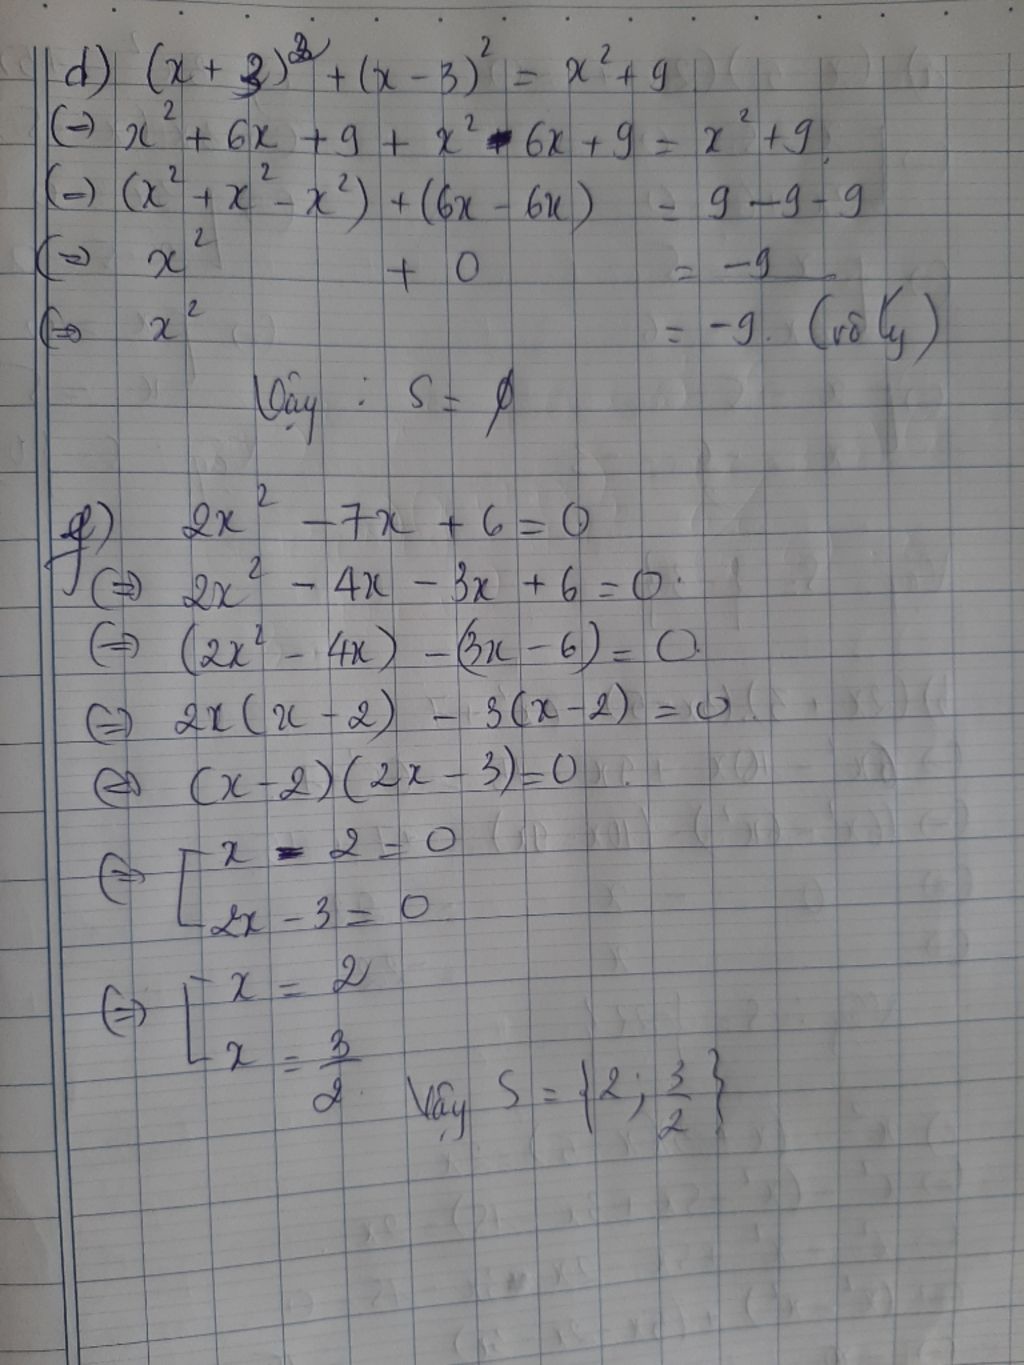 d) (x + 3)² + (x - 3)² = x² + 9
(=) x² + 6x + 9 + x² - 6x + 9 = x² + 9
(=) (x² + x² - x²) + (6x - 6x) = 9 - 9 - 9
(=) x² + 0 = -9
(=) x² = -9. (vô lý)
Vậy : S = ∅
g) 2x² - 7x + 6 = 0
(=) 2x² - 4x - 3x + 6 = 0.
(=) (2x² - 4x) - (3x - 6) = 0.
(=) 2x(x - 2) - 3(x - 2) = 0
(=) (x - 2)(2x - 3) = 0
(=) [ x - 2 = 0
2x - 3 = 0
(=) [ x = 2
x = 3/2
Vậy S = {2; 3/2}